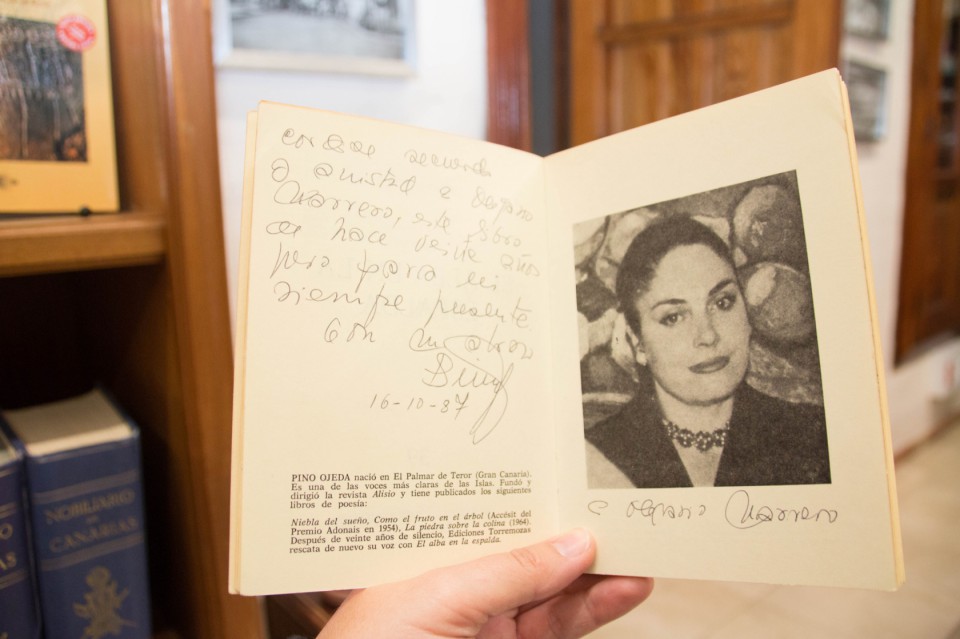 recuerdo
amistad a
Marrero, este libro
de hace veinte años
pero para mi
siempre presente
Con un abrazo
Pino
16-10-87
PINO OJEDA nació en El Palmar de Teror (Gran Canaria).
Es una de las voces más claras de las Islas. Fundó y
dirigió la revista Alisio y tiene publicados los siguientes
libros de poesía:
Niebla del sueño, Como el fruto en el árbol (Accésit del
Premio Adonais en 1954), La piedra sobre la colina (1964).
Después de veinte años de silencio, Ediciones Torremozas
rescata de nuevo su voz con El alba en la espalda.
Marrero
NOBILIARIO
DE
CANARIAS